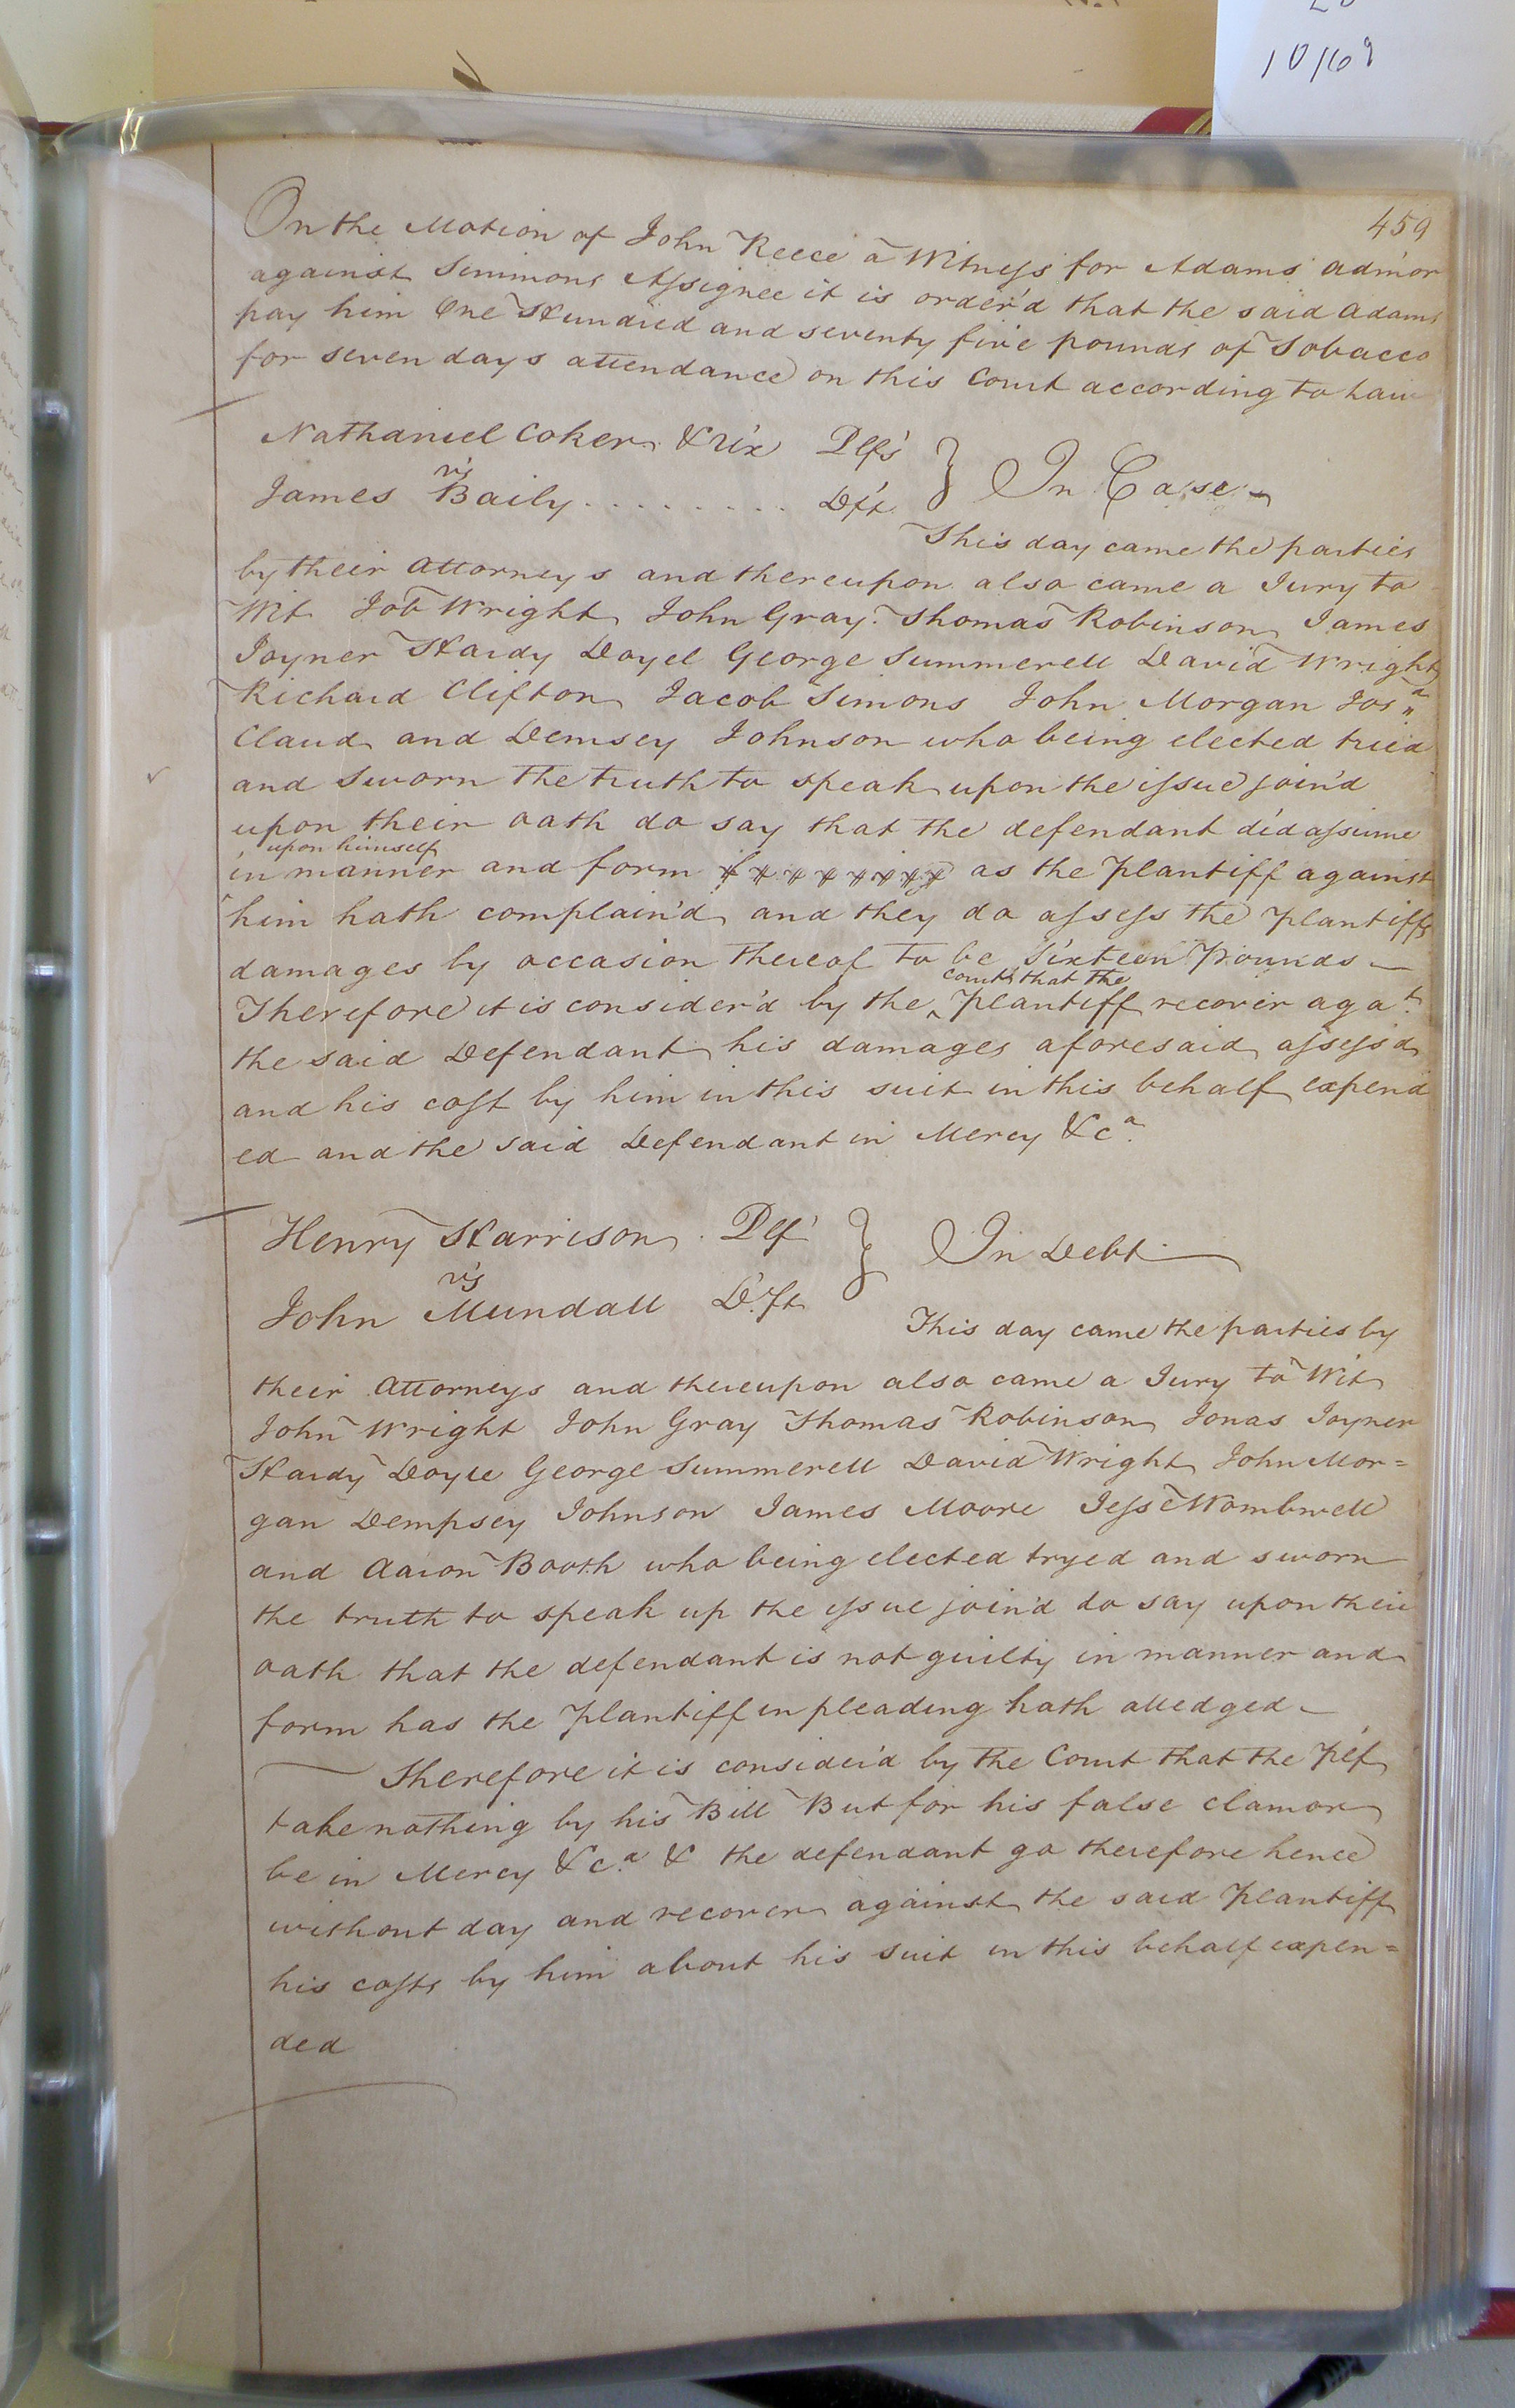 10/69
459
On the Motion of John Reece a Witness for Adams adm'or
against Simmons Assignee it is order'd that the said Adams
pay him One Hundred and seventy five pounds of Tobacco
for seven days attendance on this Court according to Law
Nathaniel Coker & Ux Plfs } In Case
vs
James Baily ........ Dft
This day came the parties
by their Attorneys and thereupon also came a Jury to
Wit Job Wright John Gray Thomas Robinson James
Joyner Hardy Doyel George Summerell David Wright
Richard Clifton Jacob Simons John Morgan Josa
Claud and Demsey Johnson who being elected tried
and sworn the truth to speak upon the issue join'd
upon their oath do say that the defendant did assume
upon himself
in manner and form as the Plantiff against
him hath complain'd and they do assess the Plantiffs
damages by occasion thereof to be Sixteen Pounds
court that the
Therefore it is consider'd by the ^ Plantiff recover agat
the said Defendant his damages aforesaid assess'd
and his cost by him in this suit in this behalf expend
ed and the said Defendant in Mercy &ca
Henry Harrison Plf } In Debt
vs
John Mundall Dft
This day came the parties by
their Attorneys and thereupon also came a Jury to Wit
John Wright John Gray Thomas Robinson Jonas Joyner
Hardy Doyle George Summerell David Wright John Mor=
gan Dempsey Johnson James Moore Jesse Wombwell
and Aaron Booth who being elected tryed and sworn
the truth to speak up the issue join'd do say upon their
oath that the defendant is not guilty in manner and
form has the Plantiff in pleading hath alledged
Therefore it is consider'd by the Court that the Plf
take nothing by his Bill But for his false clamor
be in Mercy &ca & the defendant go therefore hence
without day and recover against the said Plantiff
his costs by him about his suit in this behalf expen=
ded